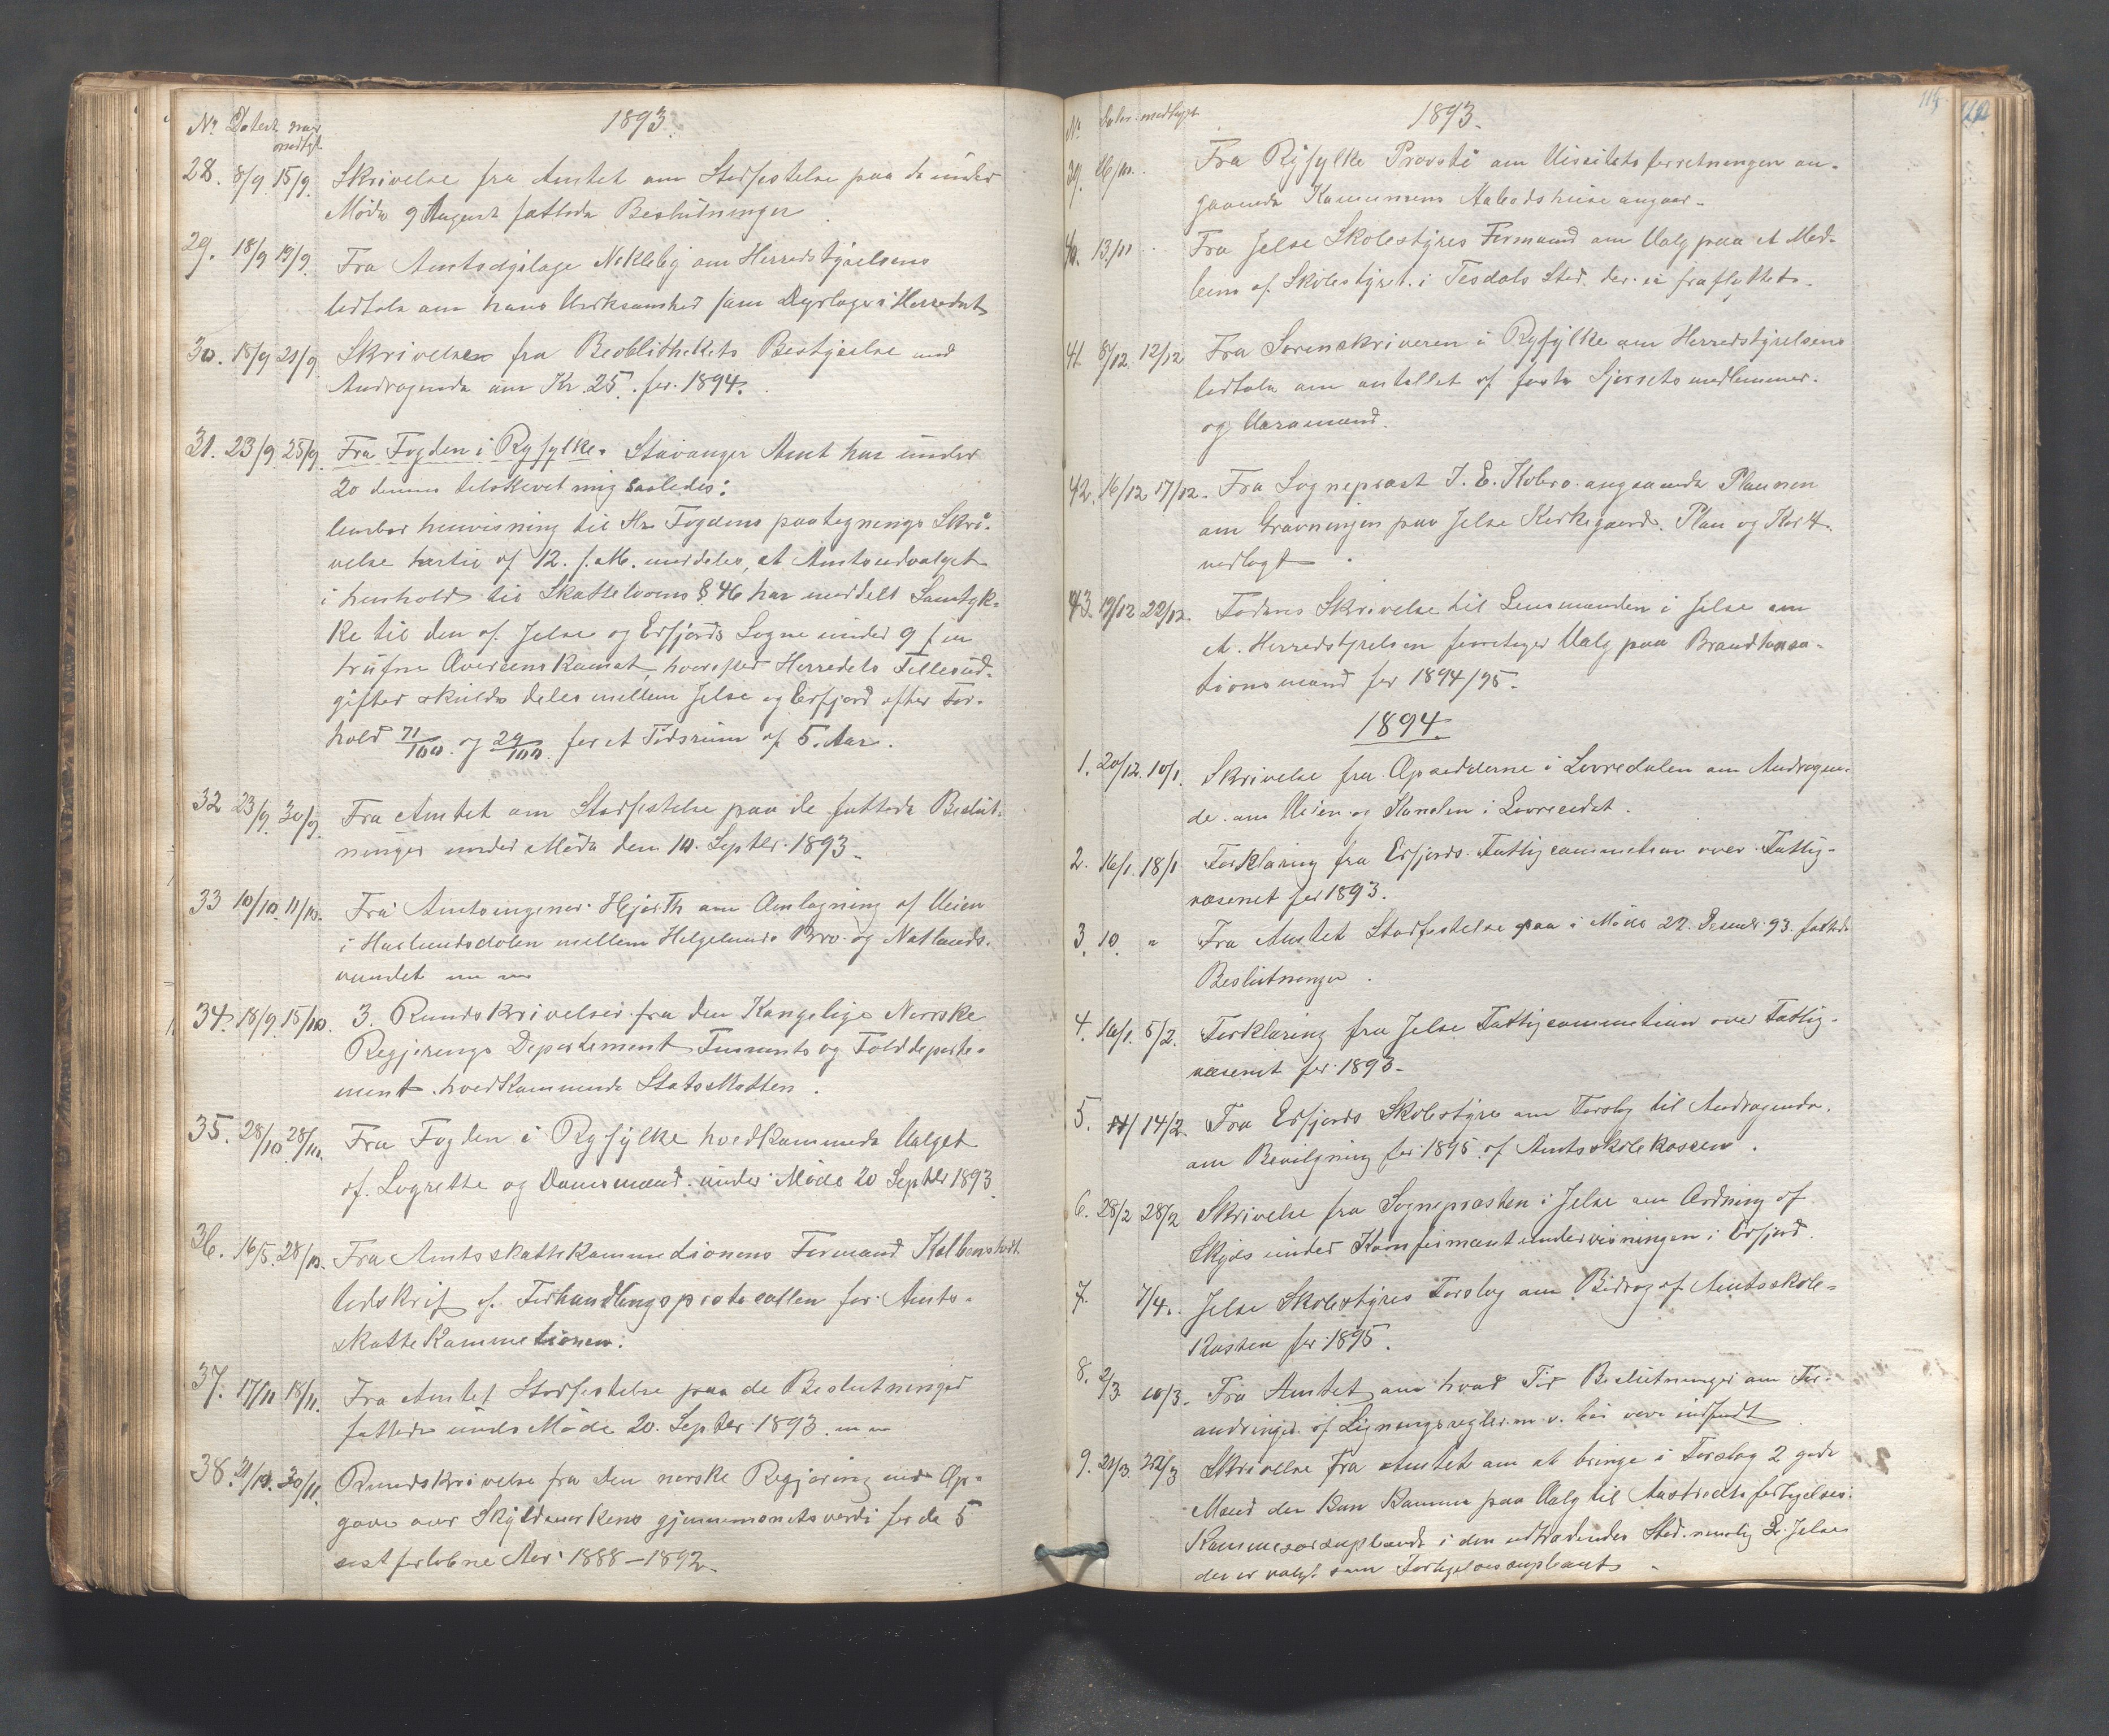 1893.
No Datert naar modtgt.
28. 8/9 15/9. Skrivelse fra Amtet om Stadfestelse paa de under
Møde 9 August fattede Beslutninger.
29. 18/9 19/9. Fra Amtsdyrlæge Nekleby om Herredstyrelsens
Udtale om hans Virksomhed som Dyrlæge i Herredet
30. 18/9 21/9. Skrivelse fra Beoblithekets Bestyrelse med
Andragende om Kr 25. for 1894.
31. 23/9 25/9. Fra Fogden i Ryfylke. Stavanger Amt har under
20 dennes telskrevet mig saaledes:
henvisning til Hr Fogdens paategnings Skri-
velse hertil af 12. f. M. meddeles, at Amtsudvalget
i henhold til Skattelovens § 46 har meddelt Samtyk-
ke til den af Jelse og Erfjords Sogne under 9 f m
trufne Overenskomst, hvorefter Herredets Fellesud-
gifter skulde deles mellem Jelse og Erfjord efter For-
hold 71/100 og 29/100 for et Tidsrum af 5 Aar.
32 23/9. 30/9. Fra Amtet om Stadfestelse paa de fattede Beslut-
ninger under Møde den 10. Septbr. 1893.
33 10/10. 11/10. Fra Amtsingeniør Hjorth om Omlægning af Veien
i Haslemdsdalen mellem Helgelands Bro og Natlands-
vandet m m
34. 18/9 15/10. 3. Rundskrivelser fra den Kongelige Norske
Regjerings Departement Finants og Tolddeparte-
ment hvedkommende Statsskatten.
35. 28/10 28/10. Fra Fogden i Ryfylke hvedkommende Valget
af Lagrette og Domsmænd under Møde 20 Septbr 1893.
36. 16/5. 28/10. Fra Amtsskattekommetionens Formand Kolbenstvedt
Udskrif af Forhandlingsprotocallen for Amts-
skattekommetionen.
37. 17/11 18/11. Fra Amtet Stadfestelse paa de Beslutninger
fattede under Møde 20. Septbr. 1893. m m
38. 21/10. 30/11. Rundskrivelse fra den norske Regjering med Op-
gave over Skyldmarkens gjennemsnitsverdi for de 5
sist forløbne Aar 1888-1892.
115
1893.
No Dater. modtagt
39. 26/10. Fra Ryfylke Provsti om Visitatsforretningen an-
gaaende Kommunens Aabodshuse angaar.
40. 13/11 Fra Jelse Skolestyres Formand om Valg paa et Med-
lem af Skolestyret i Tesdals Sted der er fraflyttet.
41. 8/12. 12/12 Fra Sorenskriveren i Ryfylke om Herredstyrelsens
Udtale om antallet af faste Sjøretsmedlemmer
og Varamænd.
42. 16/12 17/12. Fra Sogneprest J. E. Kobro angaaende Plannen
om Gravningen paa Jelse Kirkegaard. Plan og Kort
vedlagt
43. 19/12 22/12. Fodens Skrivelse til Lensmanden i Jelse om
at Herredstyrelsen foretager Valg paa Brandtaxa-
tionsmænd for 1894/95.
1894.
1. 20/12. 10/1. Skrivelse fra Opsedderne i Lovredalen om Andragen-
de om Veien og Kanalen i Lovreeidet.
2. 16/1. 18/1 Forklaring fra Erfjords Fattigcommetion over Fattig-
væsenet for 1893.
3. 10. " Fra Amtet Stadfestelse paa i Møde 27. Desembr. 93. fattede
Beslutninger.
4. 16/1. 5/2. Forklaring fra Jelse Fattigcommetion over Fattig-
væsenet for 1893.
5. 14/2. Fra Erfjords Skolestyre om Forslag til Andragende
om Bevilgning for 1895 af Amtsskolekassen.
6. 28/2 28/2 Skrivelse fra Sognepresten i Jelse om Ordning af
Skyds under Konfirmantundervisningen i Erfjord.
7. 7/4. Jelse Skolestyres Forslag om Bidrag af Amtsskole-
kassen for 1895.
8. 2/3 10/3. Fra Amtet om hvad Tid Beslutninger om For-
andringer af Ligningsregler m. v. bør være indsendt
9. 21/3. 22/3 Skrivelse fra Amtet om at bringe i Forslag 2 gode
Mænd der kan komme paa Valg til Forligelses-
i den udtrædendes Sted nemlig Jelse
der er valgt som Forligelsessupleant